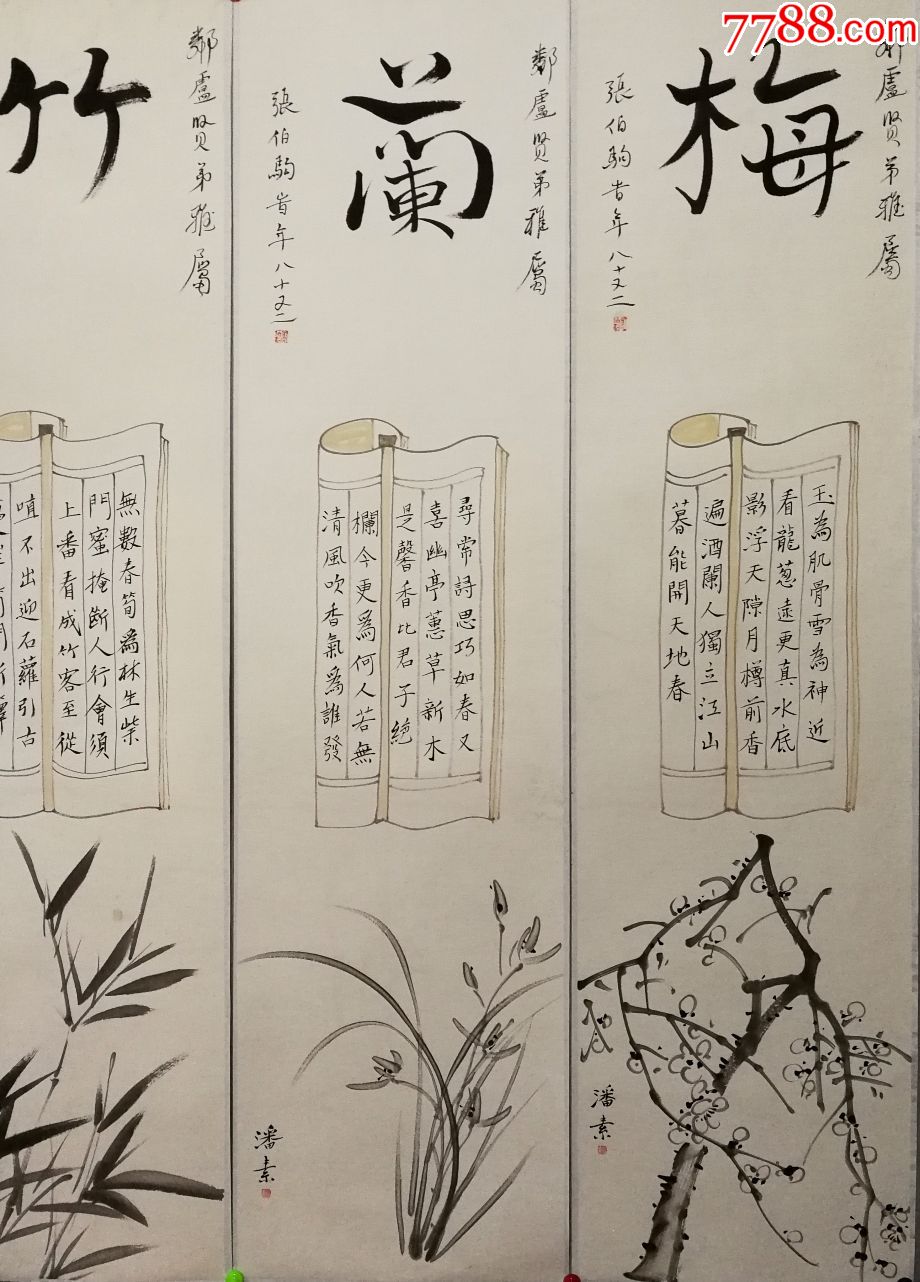 7788.com
梅
鄰盧賢弟雅屬
張伯駒時年八十又二
玉為肌骨雪為神近
看龍蔥遠更真水底
影浮天隙月樽前香
遍酒闌人獨立江山
暮能開天地春
潘素
蘭
鄰盧賢弟雅屬
張伯駒時年八十又二
尋常詩思巧如春又
喜幽亭蕙草新木
是馨香比君子絕
欄今更為何人若無
清風吹香氣為誰發
潘素
竹
鄰盧賢弟雅屬
無數春筍為林生柴
門蜜掩斷人行會須
上番看成竹客至從
嗔不出迎石蘿引古